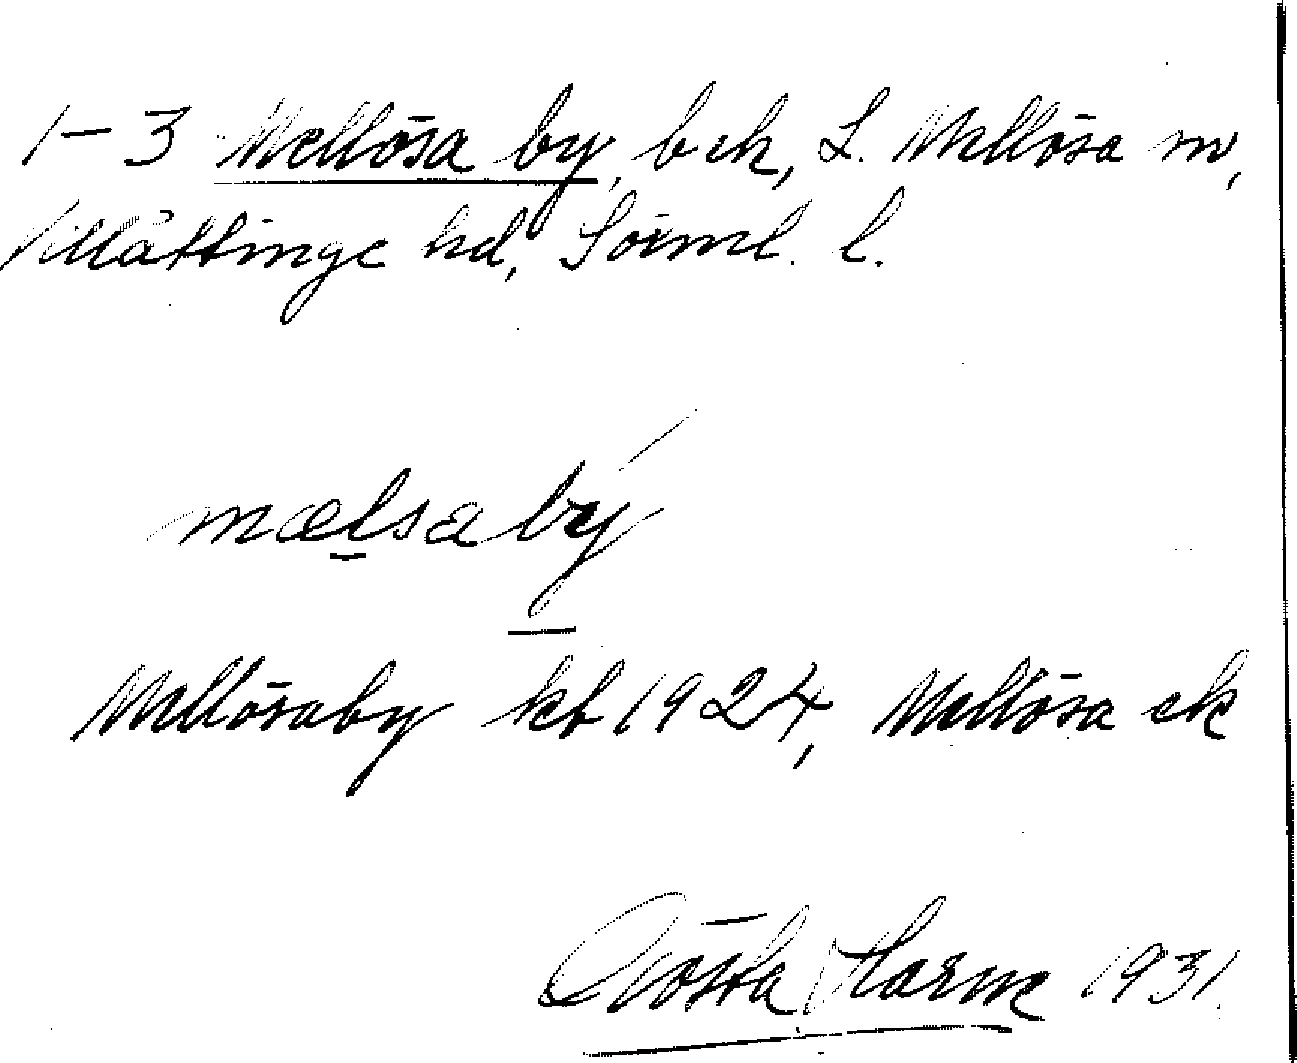 1-3 Mellösa by, bek, L. Mellösa sn,
Villåttinge hd, Södml. l.
mælsabý
Mellösaby kb 1924, Mellösa ek
Gösta Harne 1931.